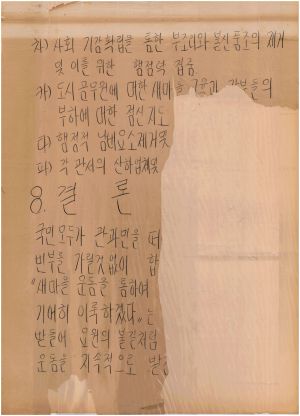 차) 사회 기강확립을 통한 부조리와 불신풍조의 제거
및 이를 위한 행정력 집중
카) 도시 공무원에 대한 새마을 교육과 간부들의
부하에 대한 정신지도
타) 행정적 낭비요소제거및
파) 각 관서의 산하업체및
8. 결 론
국민모두가 관과민을 떠
빈부를 가릴것없이 합
"새마을 운동을 통하여
기어히 이룩하겠다"는
받들어 요원의 불길처럼
운동을 지속적으로 발